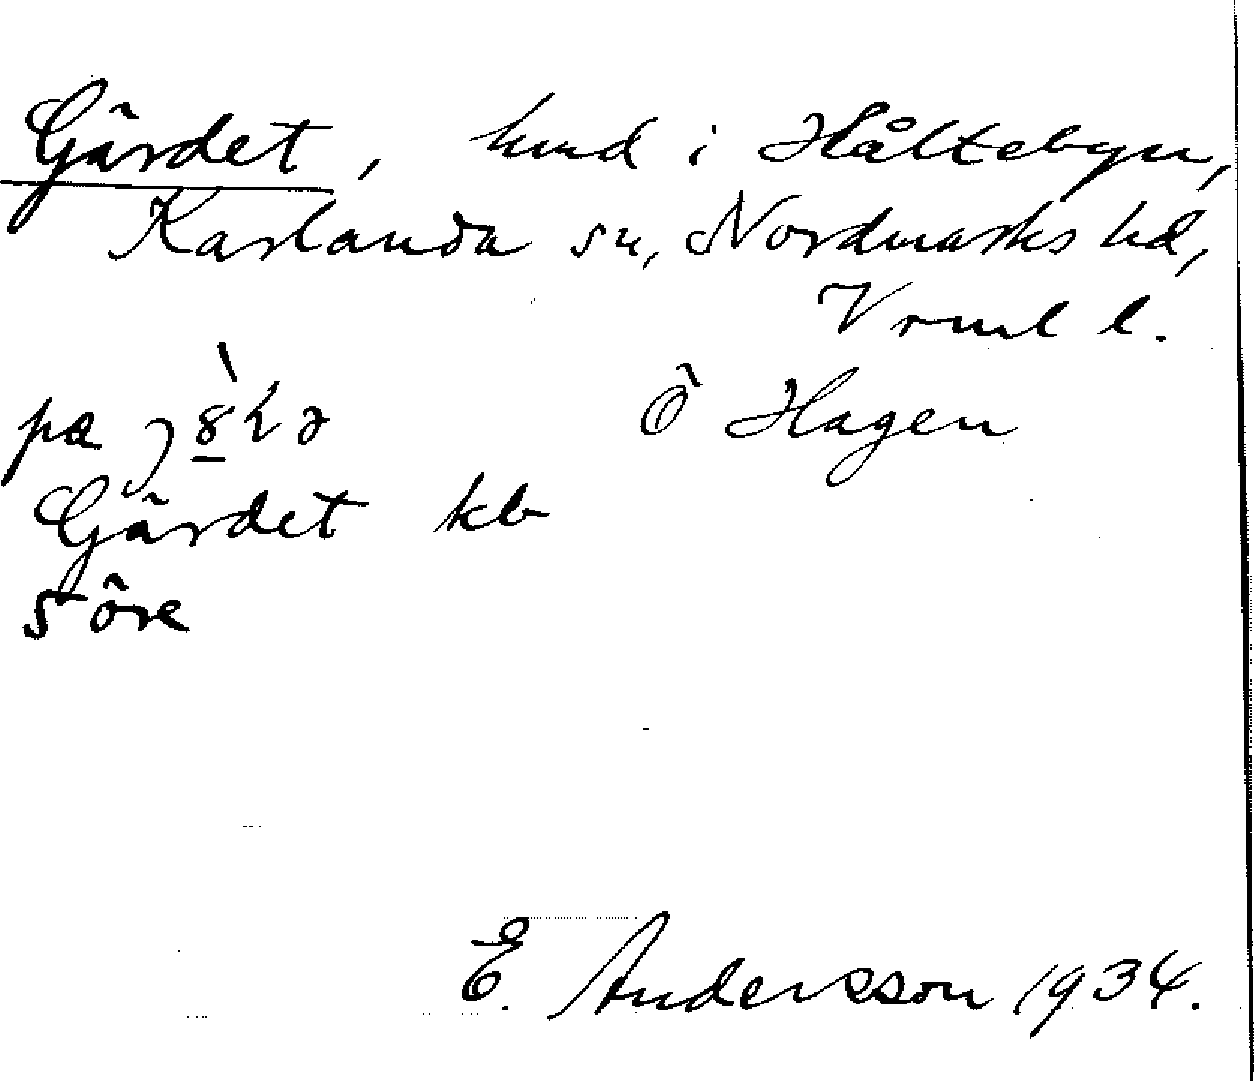 Gärdet, hmd i Håltebyn,
Karlanda sn, Nordmarks hd,
Vrml l.
pa Ö Hagen
Gärdet kb
söre
E. Andersson 1934.